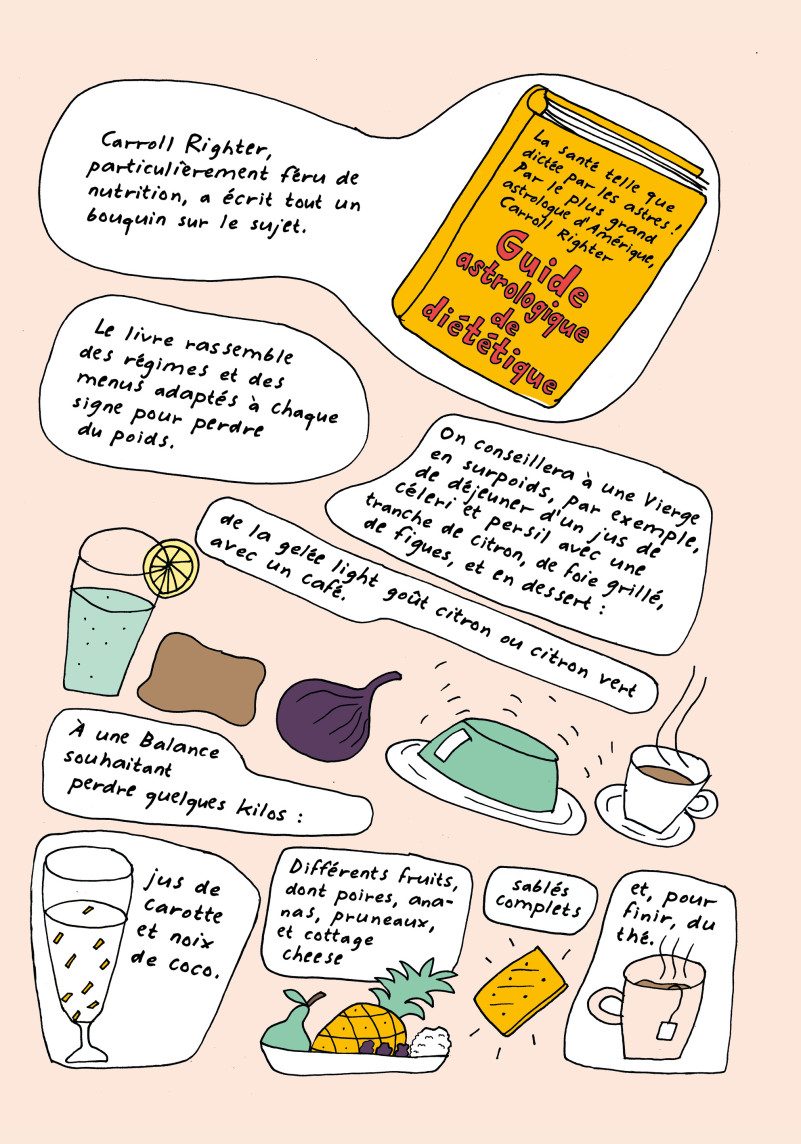 Carroll Righter,
particulièrement féru de
nutrition, a écrit tout un
bouquin sur le sujet.
La santé telle que
dictée par les astres !
Par le plus grand
astrologue d'Amérique,
Carroll Righter
Guide
astrologique
de
diététique
Le livre rassemble
des régimes et des
menus adaptés à chaque
signe pour perdre
du poids.
On conseillera à une Vierge
en surpoids, par exemple,
de déjeuner d'un jus de
céleri et persil avec une
tranche de citron, de foie grillé,
de figues, et en dessert :
de la gelée light goût citron ou citron vert
avec un café.
À une Balance
souhaitant
perdre quelques kilos :
jus de
carotte
et noix
de coco.
Différents fruits,
dont poires, ana-
nas, pruneaux,
et cottage
cheese
sablés
complets
et, pour
finir, du
thé.